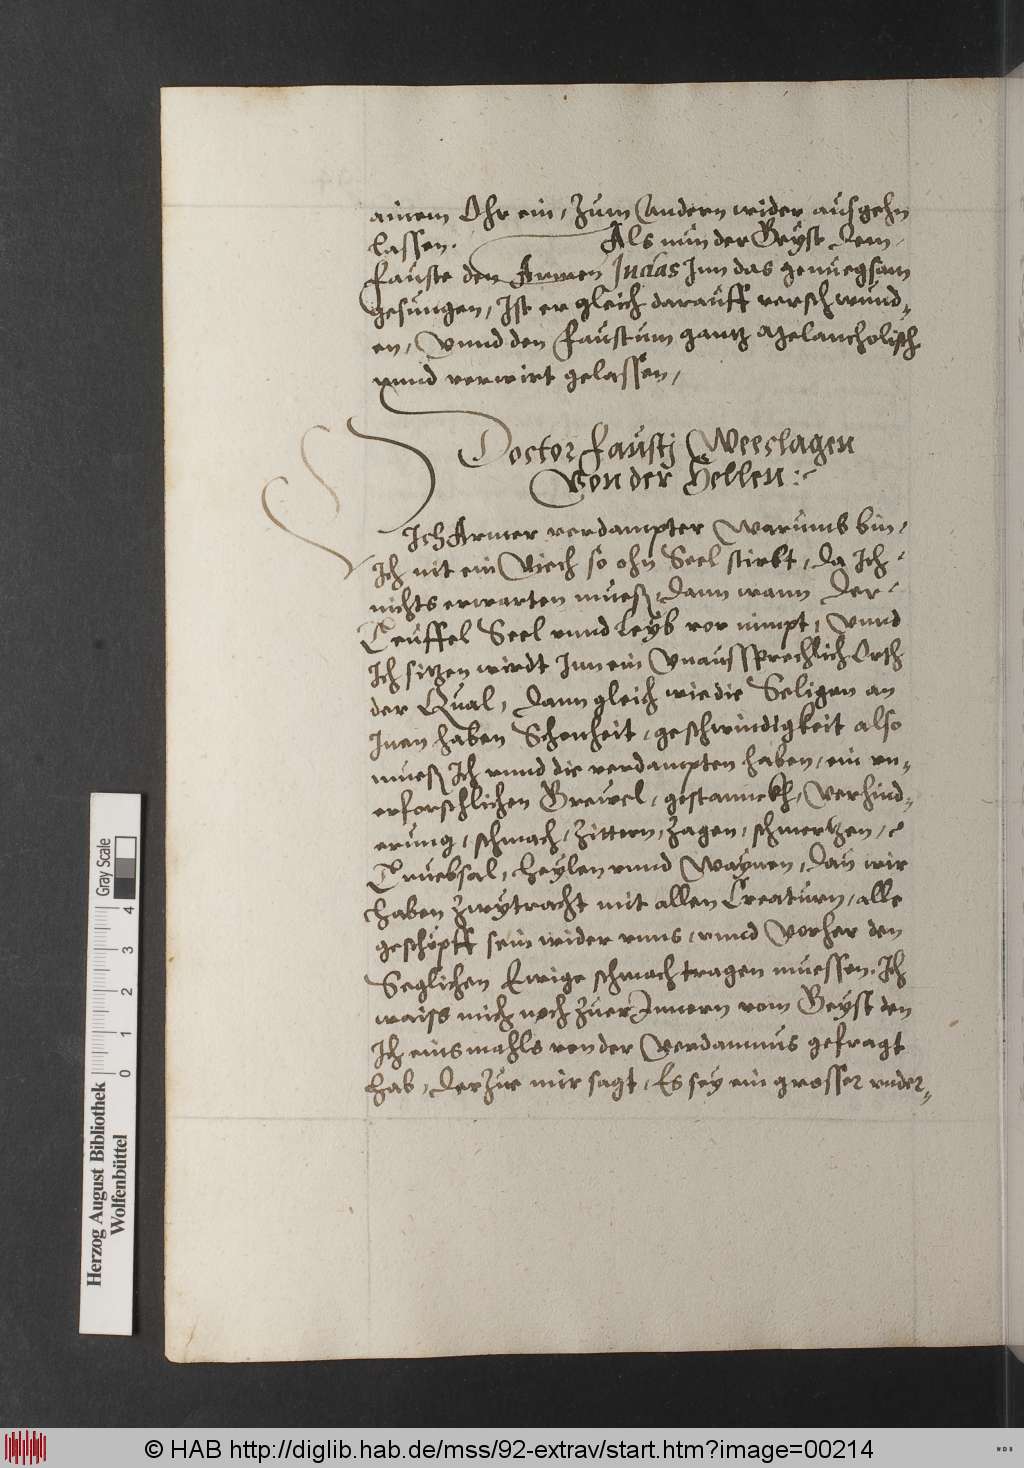 ainem Ohr ein, zum Anndern wider außgehn
lassen. Als nun der Geyst dem
Fauste den Armen Judas Inn das genuegsam
gesungen, Ist er gleich darauff verschwund-
en, Vnnd den Faustum gantz Melancholisch
vnnd verwirt gelassen,
Doctor Faustj Weeclagen
Von der Hellen:
Ich Armer verdampter Warumb bin
Ich nit ein Viech so ohn Seel stirbt, da Ich
nichts erwarten mueß, dann wann der
Teuffel Seel vnnd Leyb vor nimpt, Vnnd
Ich sitzen wirdt Inn ein Vnaussprechlich Orth
der Qual, dann gleich wie die Seligen an
Inen haben Schonheit, geschwindigkeit also
mueß Ich vnnd die verdampten haben, ein vn-
erforschlichen Grewel, gestannckh, Verhind-
erung, schmach, Zittern, Zagen, schmertzen,
Truebsal, Heylen vnnd Waynen, Day wir
haben Zwytracht mit allen Creaturn, alle
geschöpff sein wider vnns, vnnd Vorher den
Seglichen Ewige schmach tragen muessen. Ich
waiss mich noch Zuer Innern vom Geyst den
Ich einsmahls von der Verdamnus gefragt
hab, der Zue mir sagt, Es sey ein grosser vnder-
Herzog August Bibliothek
Wolfenbüttel
Gray Scale
0 1 2 3 4
© HAB http://diglib.hab.de/mss/92-extrav/start.htm?image=00214